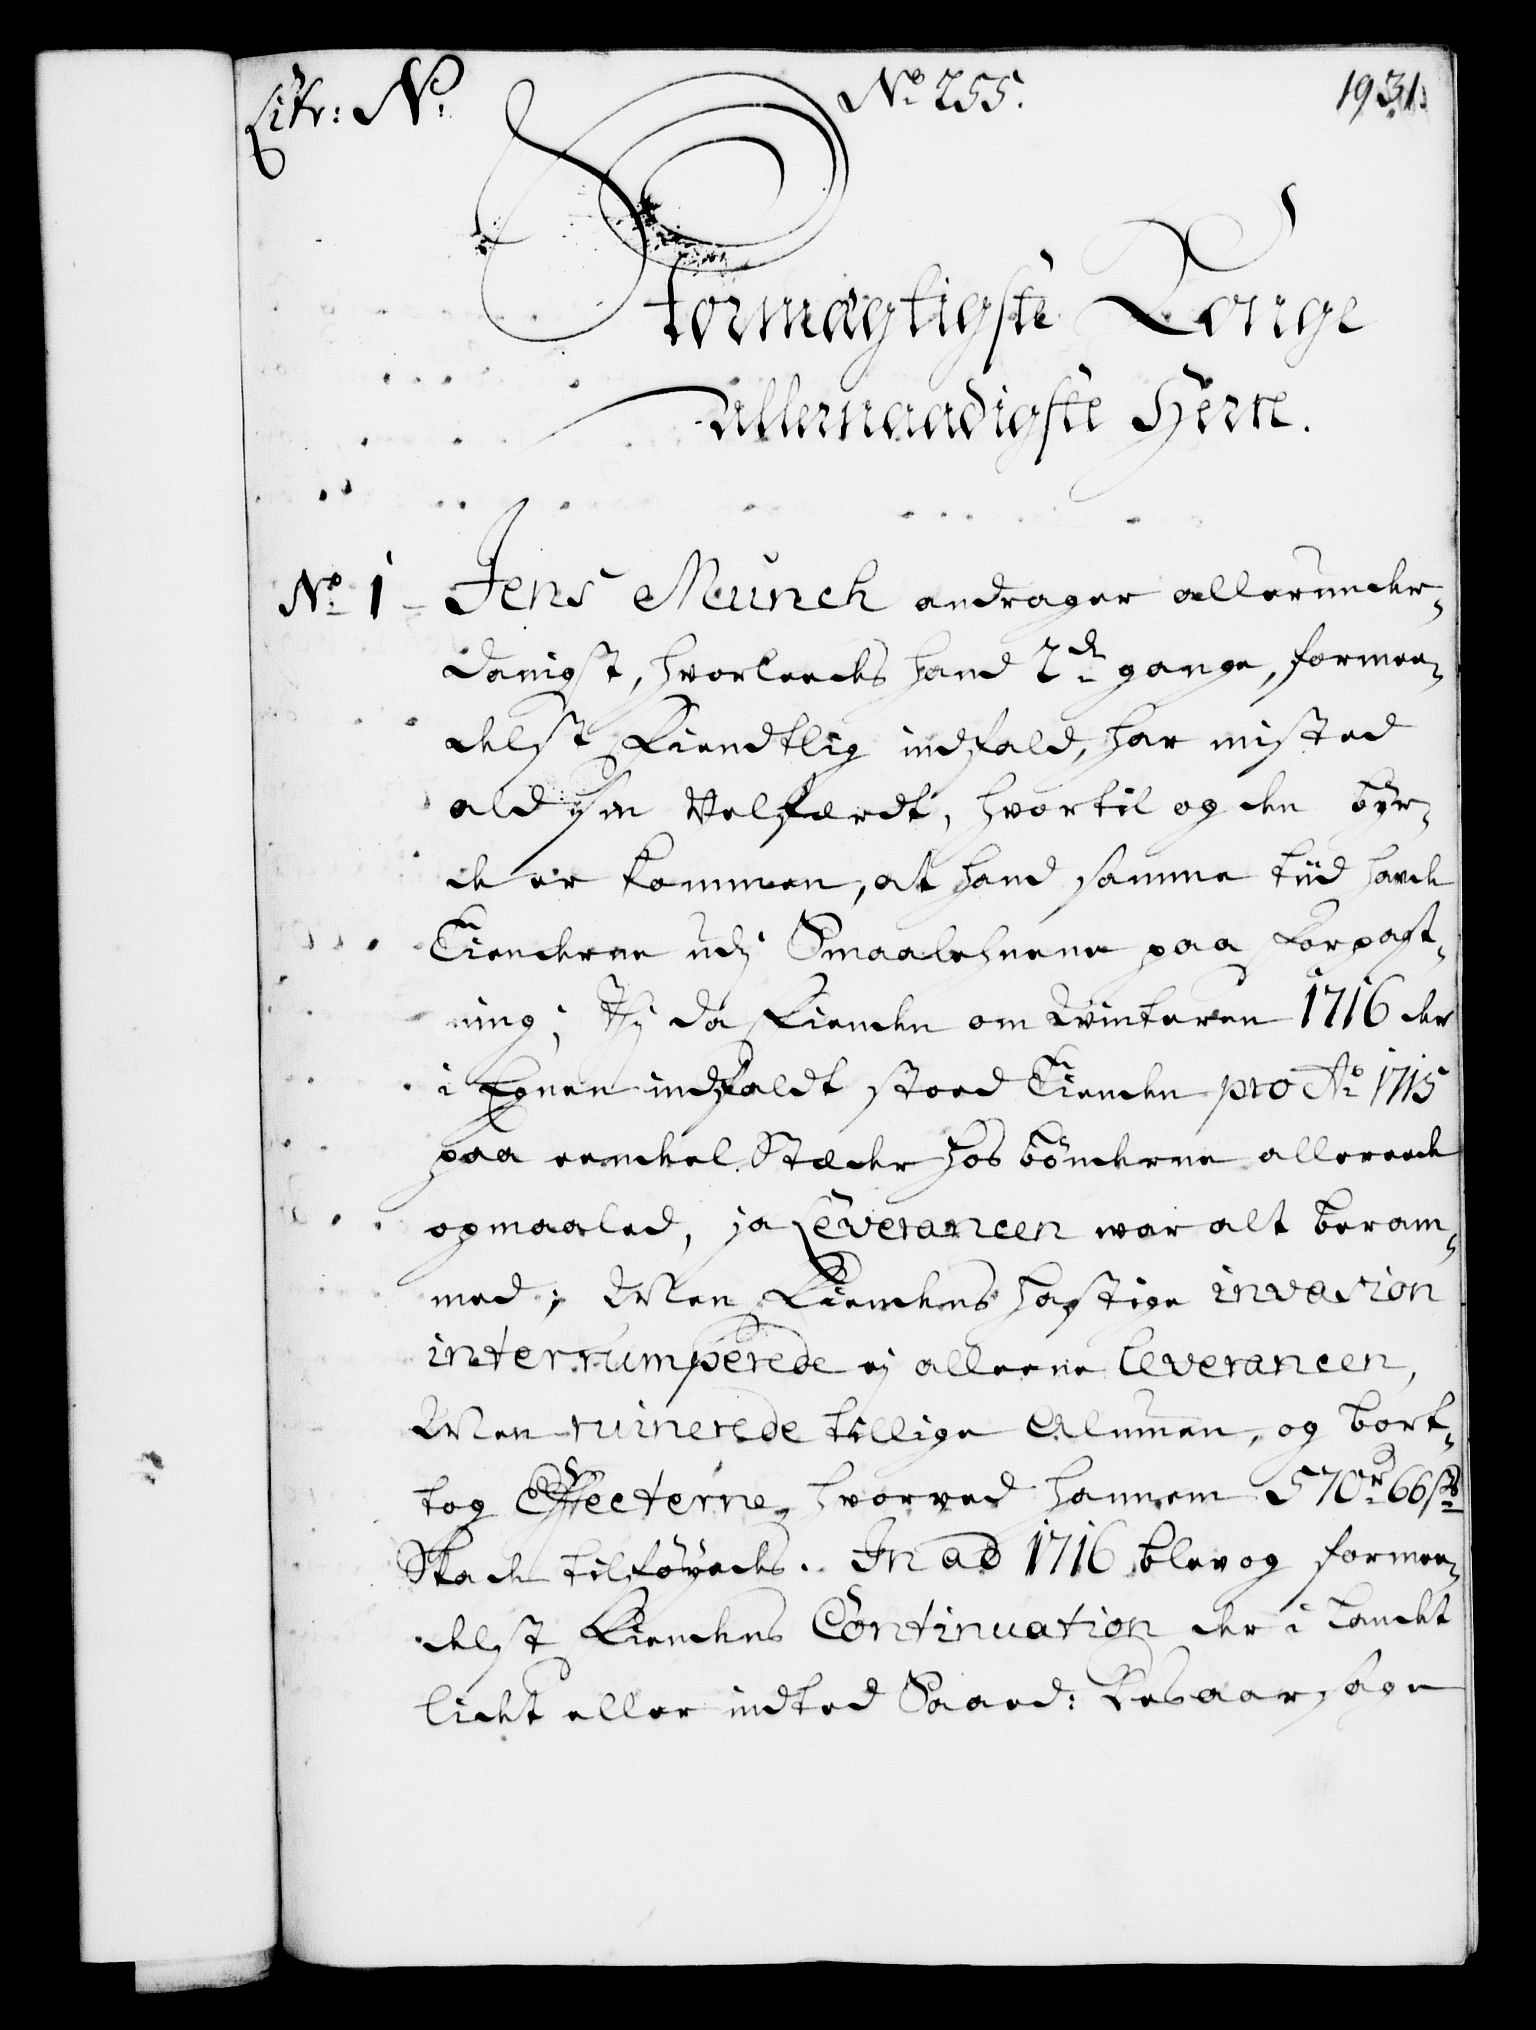 Litr: N: No 255. 1931.
Stormægtigste Konge
allernaadigste Herre.
No 1 Jens Munch andrager allerunder-
danigst, hvorleedes hand 2de gange, formee-
delst Fiendtlig indfald, har misted
ald sin Velfærdt, hvortil og den byr-
de er kommen, at hand samme tiid havde
Tienderne udj Smaalehnene paa Forpagt-
ning; Thj da Fienden om Vinteren 1716 der
i Egnen indfaldt stoed Tienden pro Ao 1715
paa eendeel Stæder hos bønderne allereede
opmaaled, ja Leverancen war alt beram-
med; Men Fiendens hastige invasion
interrumperede ej alleene leverancen,
Men ruinerede tillige Alunen, og bort-
tog Effecterne, hvorved hannem 570 rd 66 s
Skade tilføyedes. In ad 1716 blev og formee-
delst Fiendens Continuation der i landet
lidet eller indted Saaed: Aarsage